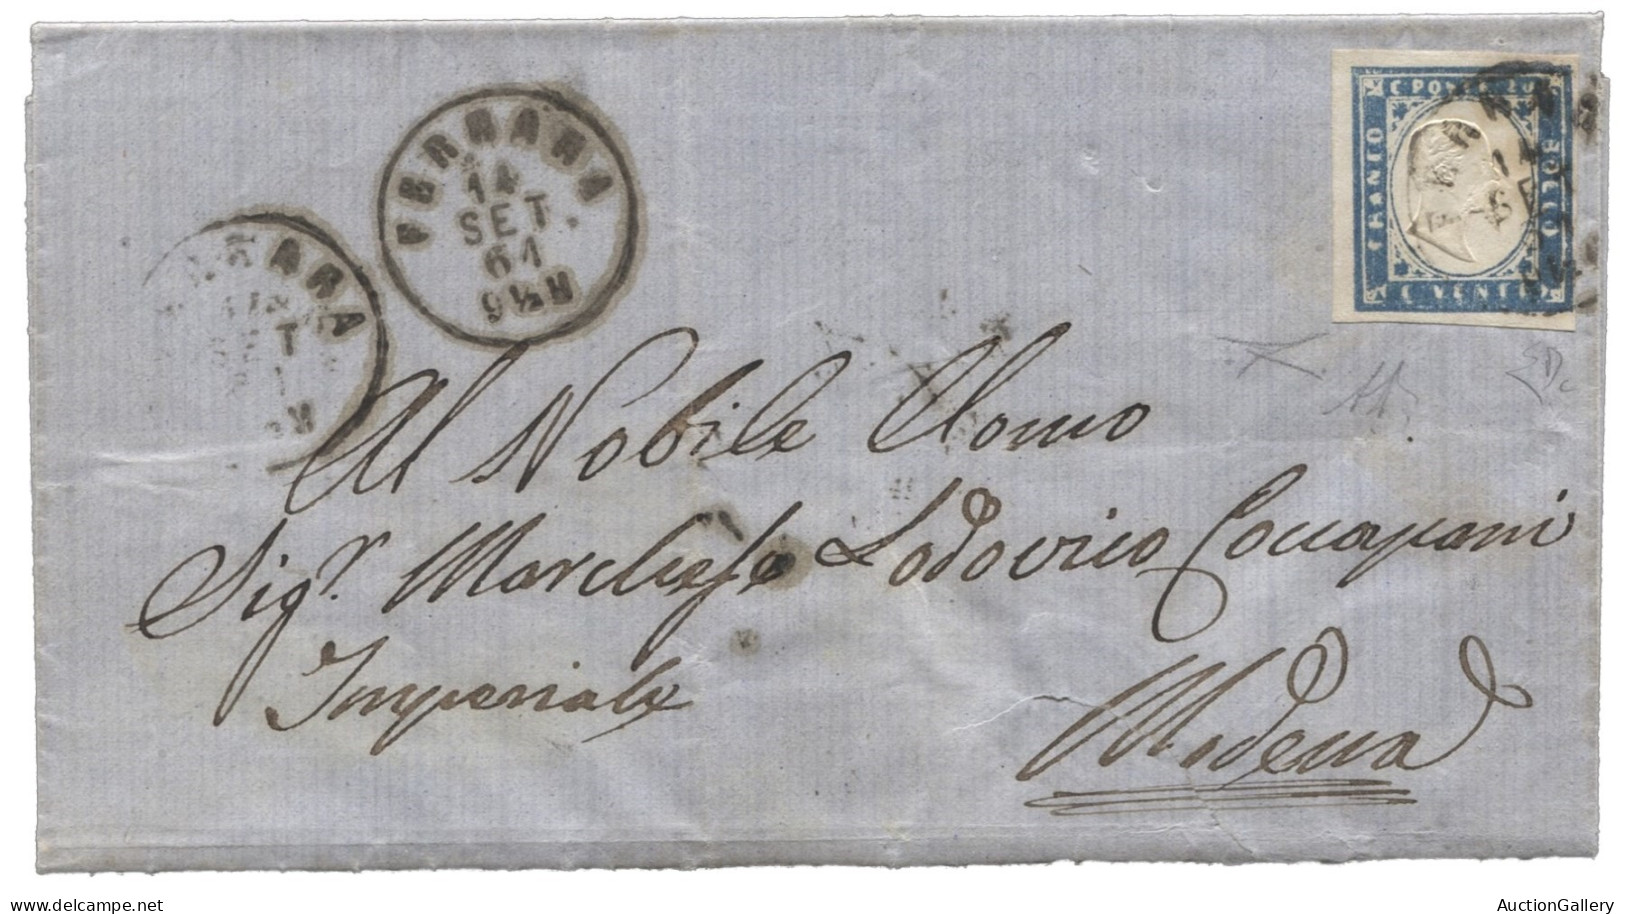 FERRARA
14
SET
61
9½ M
C. POSTE 20
FRANCO
BOLLO
C. VENTI
Al Nobile Uomo
Sigr. Marchese Lodovico Coccapani
Imperiale
Modena
delcampe.net
AuctionGallery